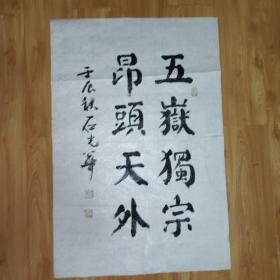 五嶽獨宗
昂頭天外
壬辰秋石光華